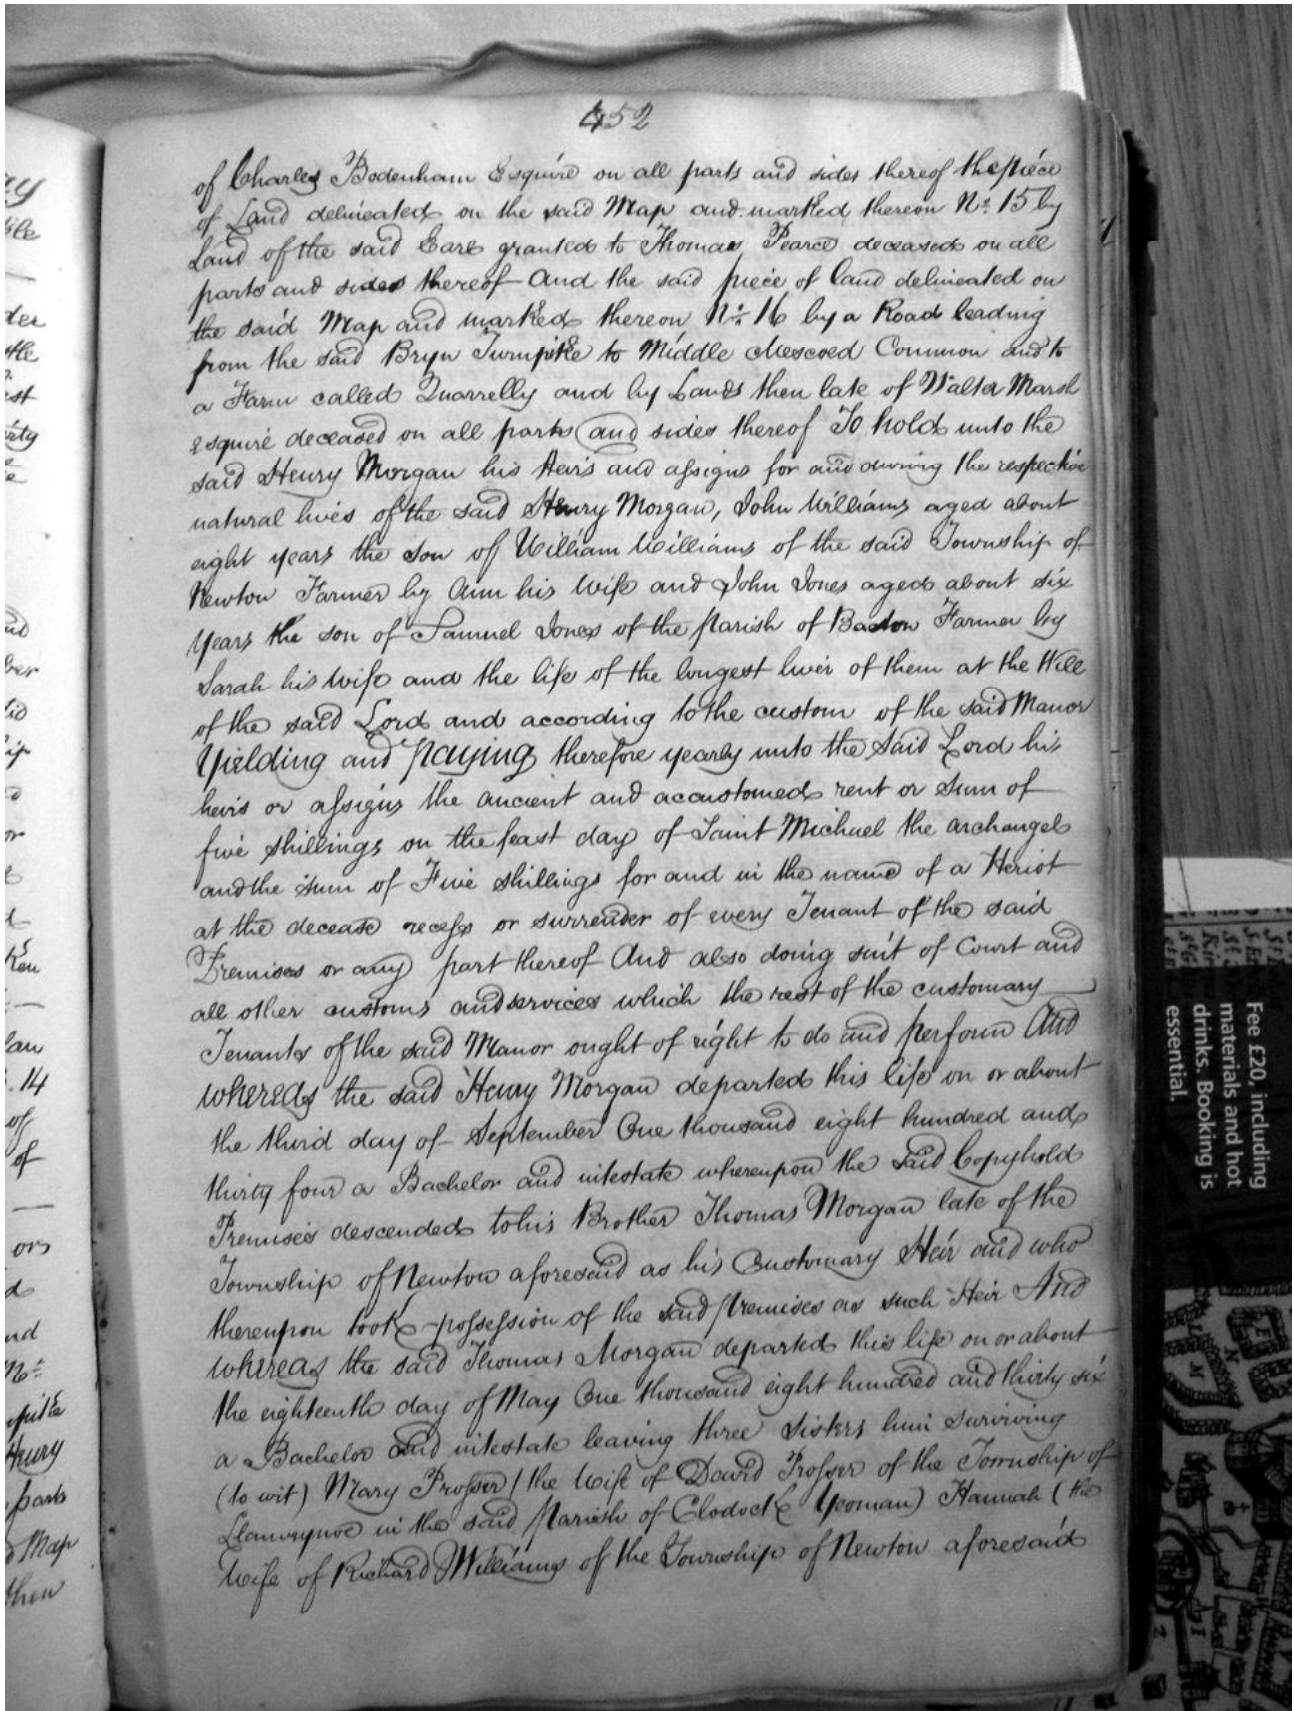 452
of Charles Bodenham Esquire on all parts and sides thereof the piece
of Land delineated on the said Map and marked thereon No. 15 by
Land of the said Earl granted to Thomas Pearce deceased on all
parts and sides thereof And the said piece of land delineated on
the said Map and marked thereon No. 16 by a Road leading
from the said Bryn Turnpike to Middle Mescoed Common and to
a Farm called Quarrelly and by Lands then late of Walter Marsh
Esquire deceased on all parts and sides thereof To hold unto the
said Henry Morgan his Heirs and assigns for and during the respective
natural lives of the said Henry Morgan, John Williams aged about
eight years the son of William Williams of the said Township of
Newton Farmer by Ann his Wife and John Jones aged about six
Years the son of Samuel Jones of the Parish of Bacton Farmer by
Sarah his wife and the life of the longest liver of them at the Will
of the said Lord and according to the custom of the said Manor
Yielding and paying therefore yearly unto the said Lord his
heirs or assigns the ancient and accustomed rent or Sum of
five shillings on the feast day of Saint Michael the archangel
and the sum of Five shillings for and in the name of a Heriot
at the decease recess or surrender of every Tenant of the said
Premises or any part thereof And also doing suit of Court and
all other customs and services which the rest of the customary
Tenants of the said Manor ought of right to do and perform And
whereas the said Henry Morgan departed this life on or about
the third day of September One thousand eight hundred and
thirty four a Bachelor and intestate whereupon the said Copyhold
Premises descended to his Brother Thomas Morgan late of the
Township of Newton aforesaid as his Customary Heir and who
thereupon took possession of the said premises as such Heir And
whereas the said Thomas Morgan departed this life on or about
the eighteenth day of May One thousand eight hundred and thirty six
a Bachelor and intestate leaving three sisters him surviving
(to wit) Mary Prosser (the wife of David Prosser of the Township of
Llanveynoe in the said Parish of Clodock Yeoman) Hannah (the
wife of Richard Williams of the Township of Newton aforesaid
Fee £20, including
materials and hot
drinks. Booking is
essential.